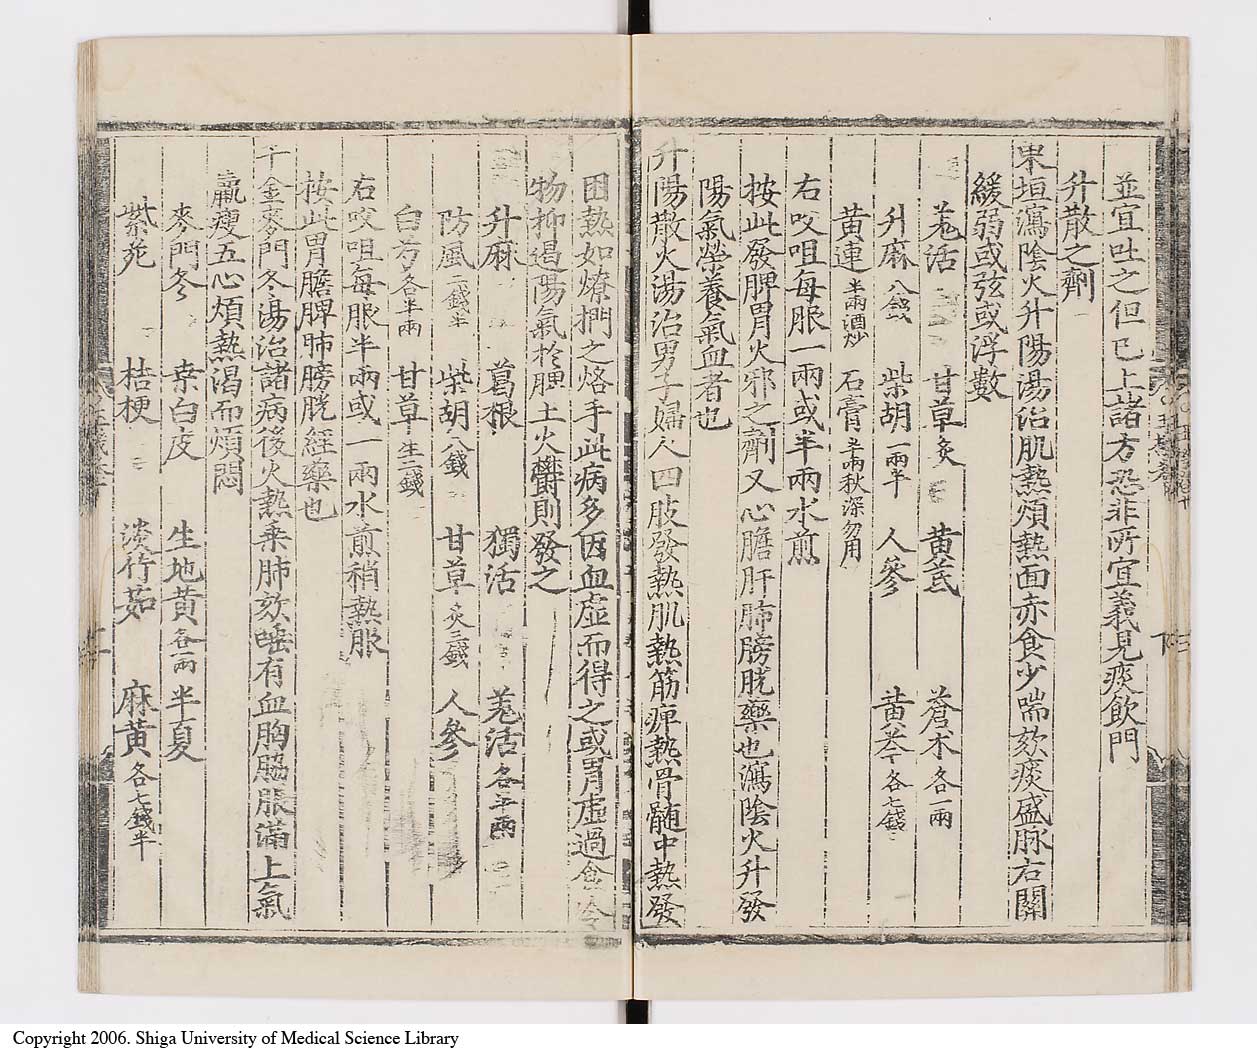 並宜吐之但已上諸方恐非所宜義見痰飲門
升散之劑
東垣瀉陰火升陽湯治肌熱煩熱面赤食少喘欬痰盛脉右關
緩弱或弦或浮數
羗活 甘草炙 黄芪 蒼朮各一兩
升麻八錢 柴胡一兩半 人參 黄芩各七錢
黄連半兩酒炒 石膏半兩秋深勿用
右㕮咀每服一兩或半兩水煎
按此發脾胃火邪之劑又心膽肝肺膀胱藥也瀉陰火升發
陽氣榮養氣血者也
升陽散火湯治男子婦人四肢發熱肌熱筋痺熱骨髓中熱發
困熱如燎捫之烙手此病多因血虚而得之或胃虚過食冷
物抑遏陽氣於脾土火欝則發之
升麻 葛根 獨活 羗活各半兩
防風二錢半 柴胡八錢 甘草炙三錢 人參
白芍各半兩 甘草生二錢
右㕮咀每服半兩或一兩水煎稍熱服
按此胃膽脾肺膀胱經藥也
千金麥門冬湯治諸病後火熱乗肺欬嗽有血胸脇脹滿上氣
羸瘦五心煩熱渴而煩悶
麥門冬 桒白皮 生地黄各一兩 半夏
紫菀 桔梗 淡竹茹 麻黄各七錢半
Copyright 2006. Shiga University of Medical Science Library